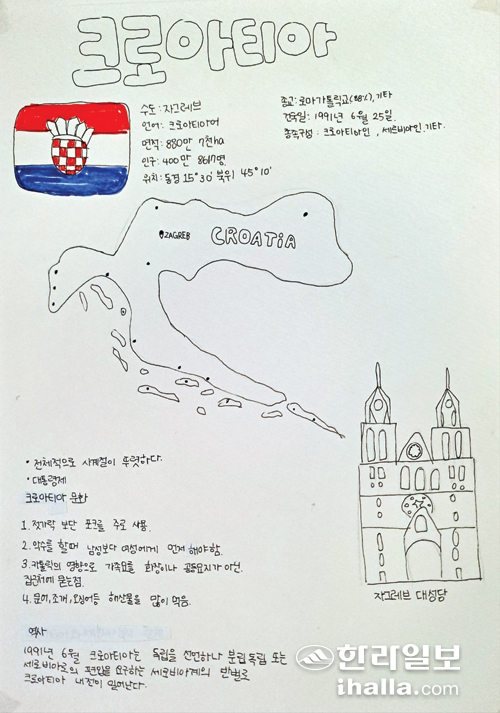 크로아티아
수도 : 자그레브
언어 : 크로아티아어
면적 : 880만 7천ha
인구 : 400만 8617명
위치 : 동경 15°30' 북위 45°10'
종교 : 로마가톨릭교(88%), 기타
건국일 : 1991년 6월 25일
종족구성 : 크로아티아인, 세르비아인, 기타.
ZAGREB
CROATIA
• 전체적으로 사계절이 뚜렷하다.
• 대통령제
크로아티아 문화
1. 젓가락 보단 포크를 주로 사용.
2. 악수를 할때 남성보다 여성에게 먼저 해야함.
3. 카톨릭의 영향으로 가족묘를 화장이나 공동묘지가 아닌,
집근처에 묻는점.
4. 문어, 조개, 오징어등 해산물을 많이 먹음.
자그레브 대성당
역사
1991년 6월 크로아티아는 독립을 선언하나 분립독립 또는
세르비아로의 편입을 요구하는 세르비아계의 반발로
크로아티아 내전이 일어난다.
한라일보
ihalla.com